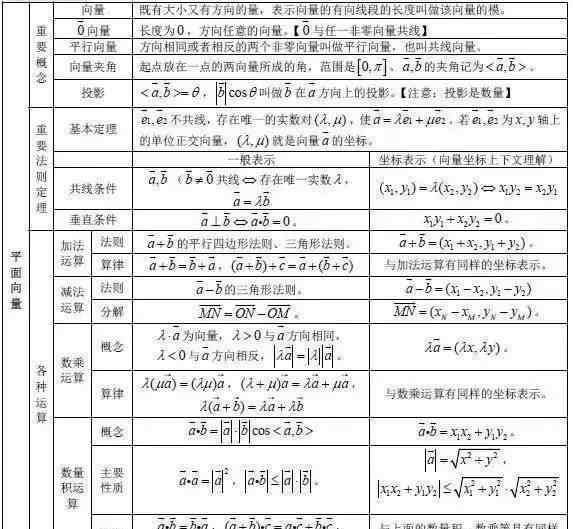 平面向量
重要概念
向量 既有大小又有方向的量，表示向量的有向线段的长度叫做该向量的模。
0⃗向量 长度为0，方向任意的向量。【0⃗与任一非零向量共线】
平行向量 方向相同或者相反的两个非零向量叫做平行向量，也叫共线向量。
向量夹角 起点放在一点的两向量所成的角，范围是[0,π]。a⃗,b⃗的夹角记为<a⃗,b⃗>。
投影 <a⃗,b⃗>=θ，|b⃗|cosθ叫做b⃗在a⃗方向上的投影。【注意：投影是数量】
重要法则定理
基本定理 e⃗₁,e⃗₂不共线，存在唯一的实数对(λ,μ)，使a⃗=λe⃗₁+μe⃗₂。若e⃗₁,e⃗₂为x,y轴上
的单位正交向量，(λ,μ)就是向量a⃗的坐标。
一般表示 坐标表示（向量坐标上下文理解）
共线条件 a⃗,b⃗（b⃗≠0⃗共线⇔存在唯一实数λ，
a⃗=λb⃗ (x₁,y₁)=λ(x₂,y₂)⇔x₁y₂=x₂y₁
垂直条件 a⃗⊥b⃗⇔a⃗•b⃗=0。 x₁y₁+x₂y₂=0。
各种运算
加法运算
法则 a⃗+b⃗的平行四边形法则、三角形法则。 a⃗+b⃗=(x₁+x₂,y₁+y₂)。
算律 a⃗+b⃗=b⃗+a⃗，(a⃗+b⃗)+c⃗=a⃗+(b⃗+c⃗) 与加法运算有同样的坐标表示。
减法运算
法则 a⃗−b⃗的三角形法则。 a⃗−b⃗=(x₁−x₂,y₁−y₂)
分解 MN=ON−OM。 MN=(x_N−x_M,y_N−y_M)。
数乘运算
概念 λ·a⃗为向量，λ>0与a⃗方向相同，
λ<0与a⃗方向相反，|λa⃗|=|λ||a⃗|。 λa⃗=(λx,λy)。
算律 λ(μa⃗)=(λμ)a⃗，(λ+μ)a⃗=λa⃗+μa⃗，
λ(a⃗+b⃗)=λa⃗+λb⃗ 与数乘运算有同样的坐标表示。
数量积运算
概念 a⃗•b⃗=|a⃗|·|b⃗|cos<a⃗,b⃗> a⃗•b⃗=x₁x₂+y₁y₂。
主要性质 a⃗•a⃗=|a⃗|²，|a⃗•b⃗|≤|a⃗|·|b⃗|。 |a⃗|=√(x²+y²)，
|x₁x₂+y₁y₂|≤√(x₁²+y₁²)·√(x₂²+y₂²)
a⃗•b⃗=b⃗•a⃗，(a⃗+b⃗)•c⃗=a⃗•c⃗+b⃗•c⃗， 与上面的数量积、数乘等具有同样